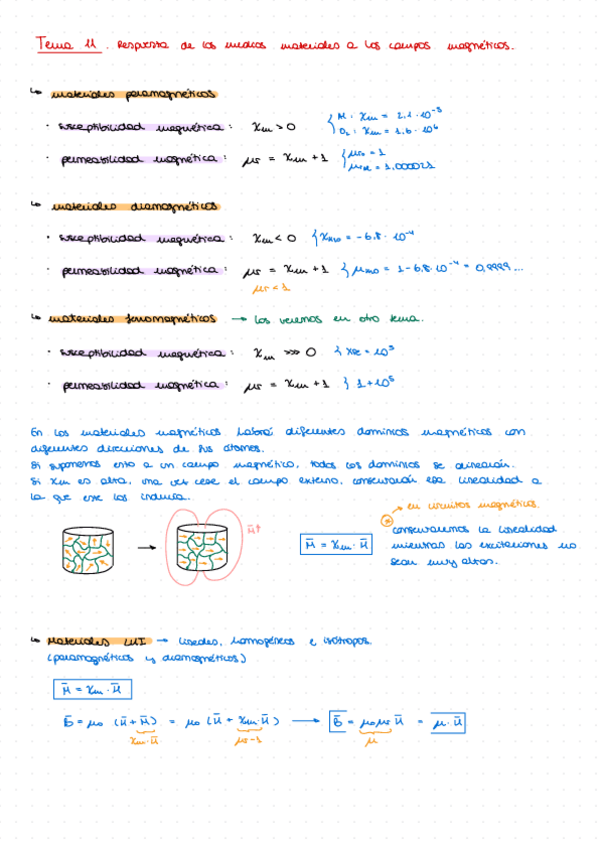 Tema 11. Respuesta de los medios materiales a los campos magnéticos.
↳ materiales paramagnéticos
· susceptibilidad magnética: χm > 0 { Al: χm = 2,1·10⁻⁵
O₂: χm = 1,6·10⁶
· permeabilidad magnética: μr = χm + 1 { = 1
= 1,000021
↳ materiales diamagnéticos
· susceptibilidad magnética: χm < 0 { = -6,8·10⁻⁴
· permeabilidad magnética: μr = χm + 1 { = 1-6,8·10⁻⁴ = 0,9999...
μr < 1
↳ materiales ferromagnéticos → los veremos en otro tema.
· susceptibilidad magnética: χm >>> 0 { = 10⁵
· permeabilidad magnética: μr = χm + 1 } 1+10⁵
En los materiales magnéticos habrá diferentes dominios magnéticos con
diferentes direcciones de sus átomos.
Si suponemos esto a un campo magnético, todos los dominios se alinearán.
Si χm es alta, una vez cese el campo externo, conservarán esa linealidad a
la que ese los indujera.
→ en circuitos magnéticos.
conservaremos la linealidad
mientras las excitaciones no
sean muy altas.
M̄ = χm · H̄
↳ Materiales LHI → lineales, homogéneos e isótropos.
(paramagnéticos y diamagnéticos)
M̄ = χm · H̄
B̄ = μ₀ (H̄ + M̄) = μ₀ (H̄ + χm · H̄) → B̄ = μ₀μr H̄ = μ · H̄
χm · H̄ μr-1 μ